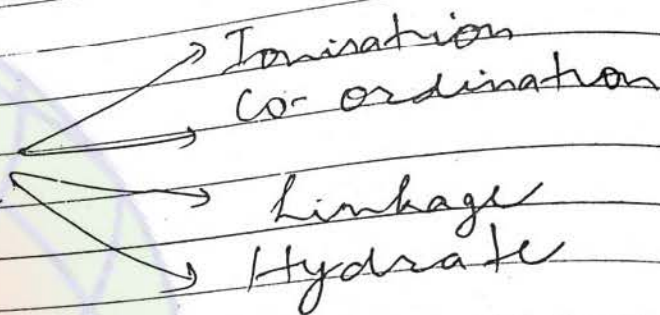 Ionisation
Co-ordination
Linkage
Hydrate